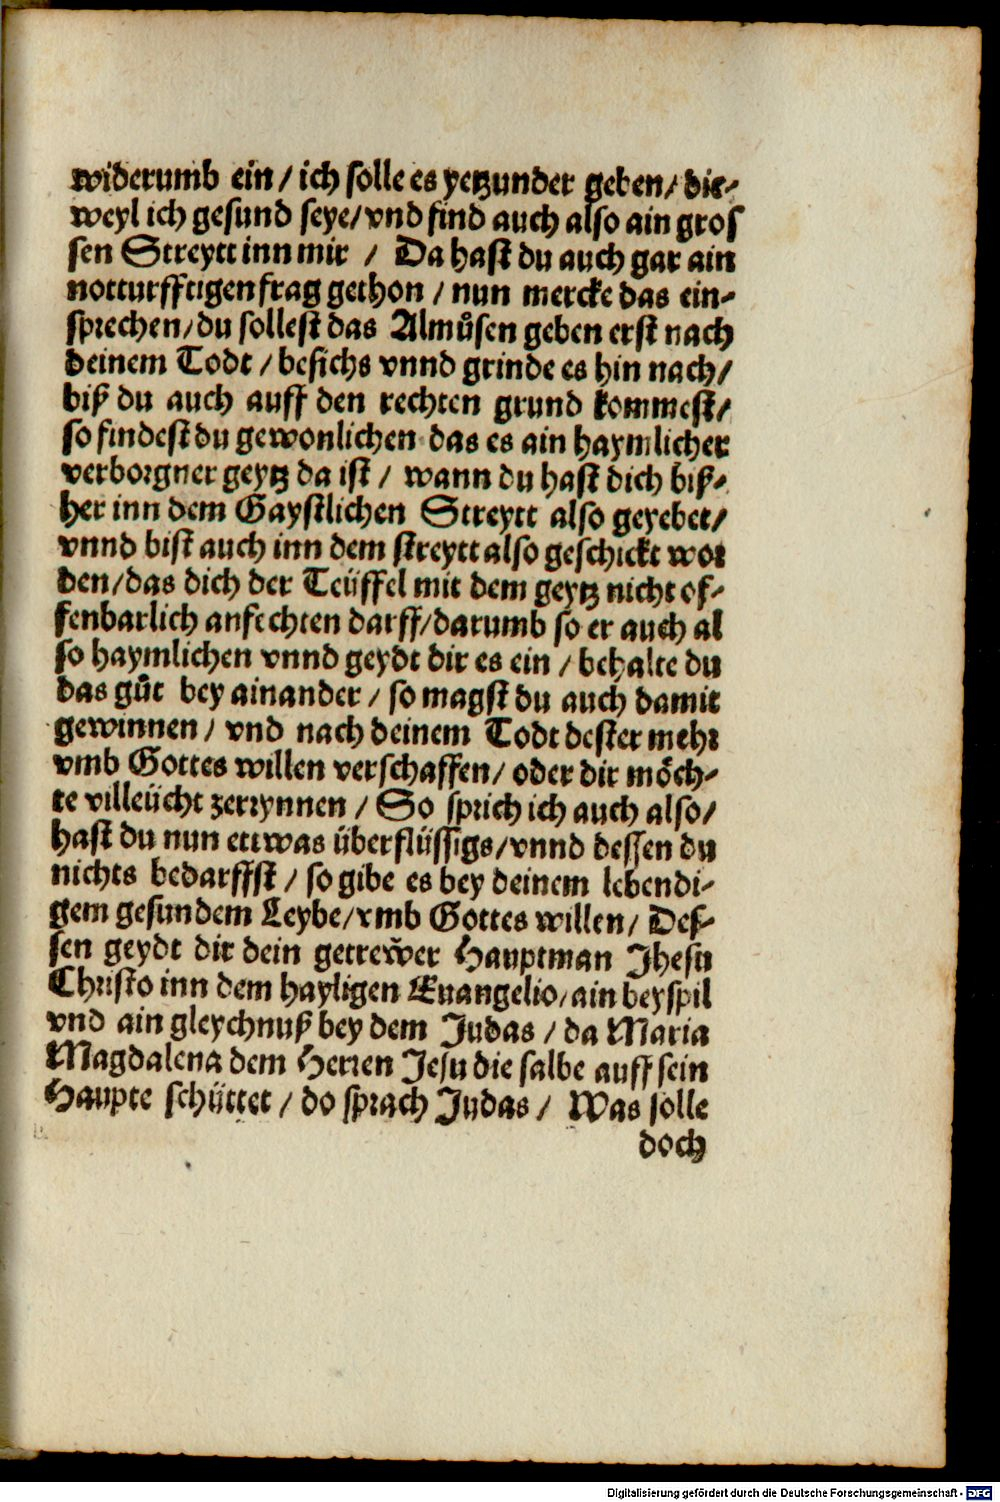 widerumb ein / ich solle es yetzunder geben / die-
weyl ich gesund seye / vnd find auch also ain gros
sen Streytt inn mir / Da hast du auch gar ain
notturfftigen frag gethon / nun mercke das ein-
sprechen / du sollest das Almůsen geben erst nach
deinem Todt / besichs vnnd grinde es hin nach /
biß du auch auff den rechten grund kommest /
so findest du gewonlichen das es ain haymlicher
verborgner geytz da ist / wann du hast dich biß-
her inn dem Gaystlichen Streytt also geyebet /
vnnd bist auch inn dem streytt also geschickt wor
den / das dich der Teüffel mit dem geytz nicht of-
fenbarlich anfechten darff / darumb so er auch al
so haymlichen vnnd geydt dir es ein / behalte du
das gůt bey ainander / so magst du auch damit
gewinnen / vnd nach deinem Todt dester mehr
vmb Gottes willen verschaffen / oder dir möch-
te villeücht zerrynnen / So sprich ich auch also /
hast du nun ettwas überflüssigs / vnnd dessen du
nichts bedarffst / so gibe es bey deinem lebendi-
gem gesundem Leybe / vmb Gottes willen / Des-
sen geydt dir dein getrewer Hauptman Jhesu
Christo inn dem hayligen Euangelio / ain beyspil
vnd ain gleychnuß bey dem Judas / da Maria
Magdalena dem Herren Jesu die salbe auff sein
Haupte schüttet / do sprach Judas / Was solle
doch
Digitalisierung gefördert durch die Deutsche Forschungsgemeinschaft - DFG